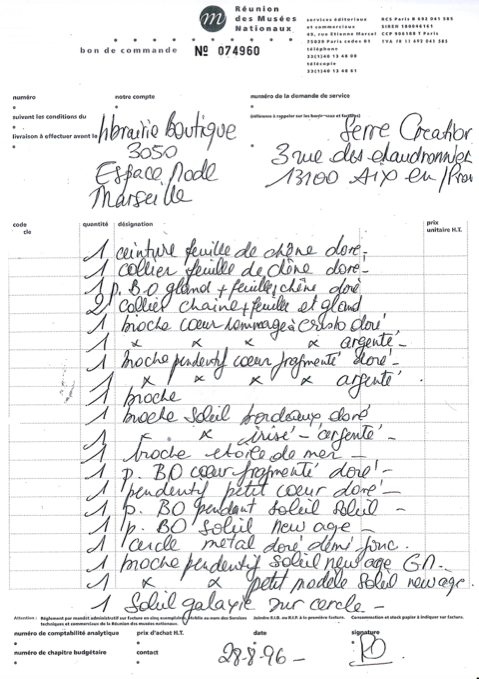 m
Réunion
des Musées
Nationaux
services éditoriaux
et commerciaux
49, rue Etienne Marcel
75039 Paris cedex 01
téléphone
33(1)40 13 48 00
télécopie
33(1)40 13 48 61
RCS Paris B 692 041 585
CCP 906188 T Paris
bon de commande Nº 074960
numéro notre compte numéro de la demande de service
suivant les conditions du
livraison à effectuer avant le
librairie Boutique
3050
Espace Mode
Marseille
Serre Creation
3 rue des chaudronniers
13100 Aix en/Prov
code
cle
quantité désignation prix
unitaire H.T.
1 ceinture feuille de chêne doré -
1 collier feuille de chêne doré -
1 p. BO gland + feuille chêne doré
2 collier chaine + feuille et gland
1 broche cœur hommage à doré
1 x x x x argenté -
1 broche pendentif cœur fragmenté doré -
1 x x x x argenté
1 broche
1 broche soleil bordeaux doré
1 x x irisé - argenté -
1 broche etoile de mer -
1 p. BO cœur fragmenté doré -
1 pendentif petit cœur doré -
1 p. BO pendant soleil soleil -
1 p. BO soleil new age -
1 cercle métal doré demi jonc.
1 broche pendentif soleil new age GM -
1 x x petit modèle soleil new age.
1 Soleil galaxie sur cercle -
Attention : Règlement par mandat administratif sur facture en cinq exemplaires
techniques et commerciaux de la Réunion des musées nationaux.
Joindre R.I.B. ou R.I.P. à la première facture.
numéro de comptabilité analytique prix d'achat H.T. date signature
numéro de chapitre budgétaire contact 28-8-96 -